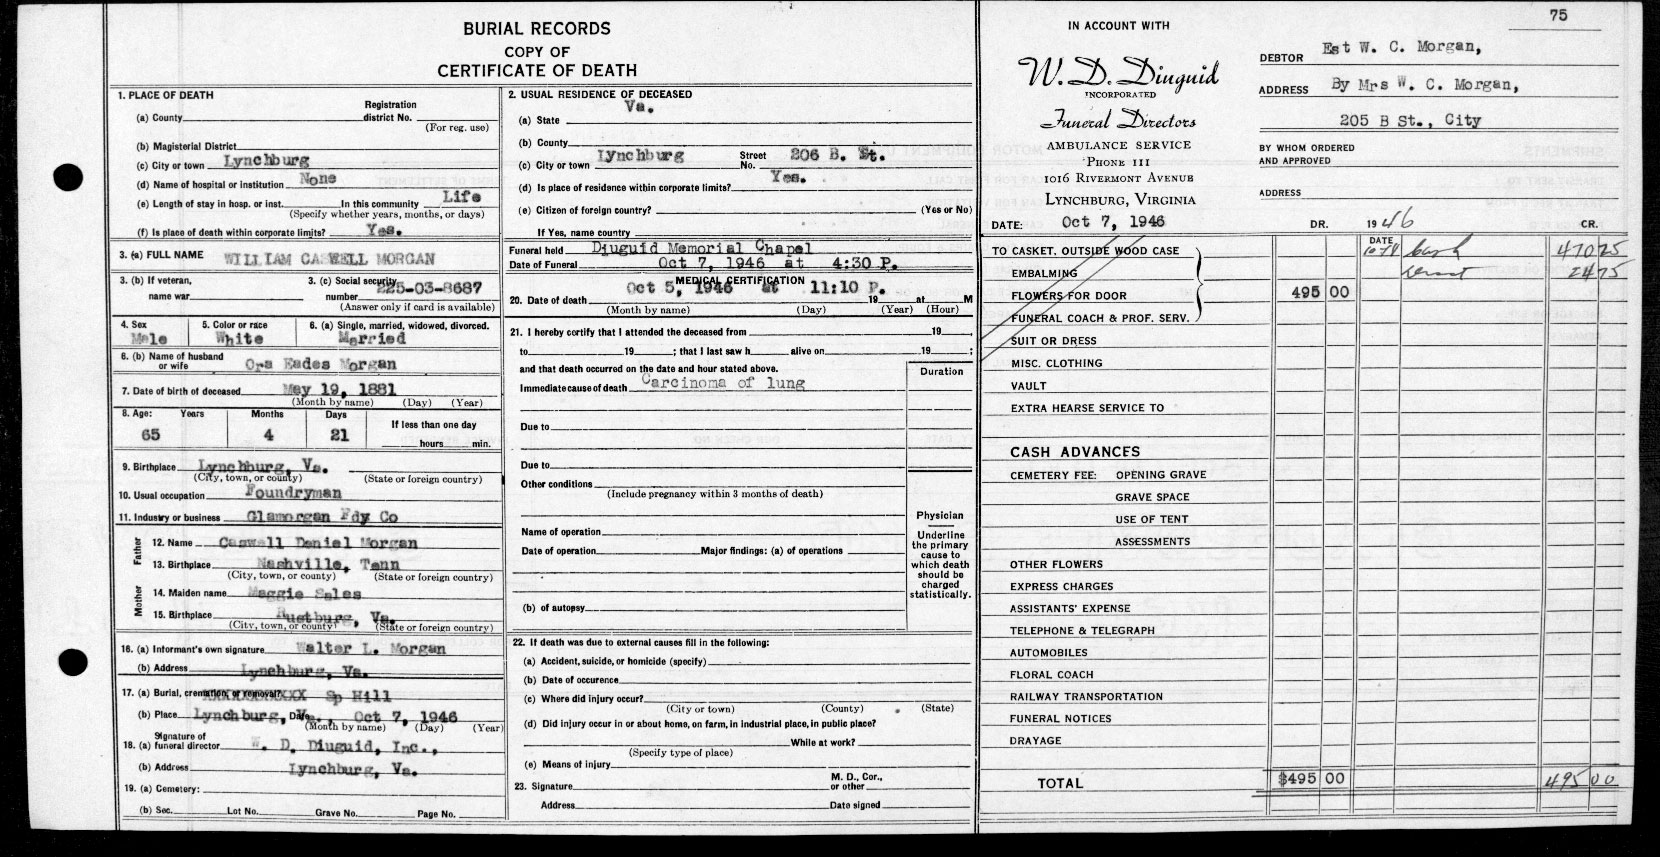 BURIAL RECORDS
COPY OF
CERTIFICATE OF DEATH
1. PLACE OF DEATH
(a) County Registration district No.
(For reg. use)
(b) Magisterial District
(c) City or town Lynchburg
(d) Name of hospital or institution None
(e) Length of stay in hosp. or inst. In this community Life
(Specify whether years, months, or days)
(f) Is place of death within corporate limits? Yes.
3. (a) FULL NAME WILLIAM CASWELL MORGAN
3. (b) If veteran, name war
3. (c) Social security number 225-03-8687
(Answer only if card is available)
4. Sex 5. Color or race 6. (a) Single, married, widowed, divorced.
Male White Married
6. (b) Name of husband or wife Ora Eades Morgan
7. Date of birth of deceased May 19, 1881
(Month by name) (Day) (Year)
8. Age: Years Months Days If less than one day
65 4 21 hours min.
9. Birthplace Lynchburg, Va.
(City, town, or county) (State or foreign country)
10. Usual occupation Foundryman
11. Industry or business Glamorgan Fdy Co
Father
12. Name Caswell Daniel Morgan
13. Birthplace Nashville, Tenn
(City, town, or county) (State or foreign country)
Mother
14. Maiden name Maggie Sales
15. Birthplace Rustburg, Va.
(City, town, or county) (State or foreign country)
16. (a) Informant's own signature Walter L. Morgan
(b) Address Lynchburg, Va.
17. (a) Burial, cremation, or removal? XXXXXXXXXXX Sp Hill
(b) Place Lynchburg, Va., Date Oct 7, 1946
(Month by name) (Day) (Year)
18. (a) Signature of funeral director W. D. Diuguid, Inc.,
(b) Address Lynchburg, Va.
19. (a) Cemetery:
(b) Sec. Lot No. Grave No. Page No.
2. USUAL RESIDENCE OF DECEASED
(a) State Va.
(b) County
(c) City or town Lynchburg Street No. 206 B. St.
(d) Is place of residence within corporate limits? Yes.
(e) Citizen of foreign country? (Yes or No)
If Yes, name country
Funeral held Diuguid Memorial Chapel
Date of Funeral Oct 7, 1946 at 4:30 P.
MEDICAL CERTIFICATION
20. Date of death Oct 5, 1946 at 11:10 P. 19 at M
(Month by name) (Day) (Year) (Hour)
21. I hereby certify that I attended the deceased from 19,
to 19; that I last saw h alive on 19;
and that death occurred on the date and hour stated above.
Duration
Immediate cause of death Carcinoma of lung
Due to
Due to
Other conditions
(Include pregnancy within 3 months of death)
Name of operation
Date of operation Major findings: (a) of operations
(b) of autopsy
Physician
Underline the primary cause to which death should be charged statistically.
22. If death was due to external causes fill in the following:
(a) Accident, suicide, or homicide (specify)
(b) Date of occurence
(c) Where did injury occur?
(City or town) (County) (State)
(d) Did injury occur in or about home, on farm, in industrial place, in public place?
While at work?
(Specify type of place)
(e) Means of injury
23. Signature M. D., Cor., or other
Address Date signed
75
IN ACCOUNT WITH
W. D. Diuguid
INCORPORATED
Funeral Directors
AMBULANCE SERVICE
PHONE 111
1016 RIVERMONT AVENUE
LYNCHBURG, VIRGINIA
DATE: Oct 7, 1946
DEBTOR Est W. C. Morgan,
ADDRESS By Mrs W. C. Morgan,
205 B St., City
BY WHOM ORDERED AND APPROVED
ADDRESS
DR. 1946 CR.
DATE
TO CASKET. OUTSIDE WOOD CASE cash 470 25
EMBALMING 24 75
FLOWERS FOR DOOR 495 00
FUNERAL COACH & PROF. SERV.
SUIT OR DRESS
MISC. CLOTHING
VAULT
EXTRA HEARSE SERVICE TO
CASH ADVANCES
CEMETERY FEE: OPENING GRAVE
GRAVE SPACE
USE OF TENT
ASSESSMENTS
OTHER FLOWERS
EXPRESS CHARGES
ASSISTANTS' EXPENSE
TELEPHONE & TELEGRAPH
AUTOMOBILES
FLORAL COACH
RAILWAY TRANSPORTATION
FUNERAL NOTICES
DRAYAGE
TOTAL $495 00 495 00